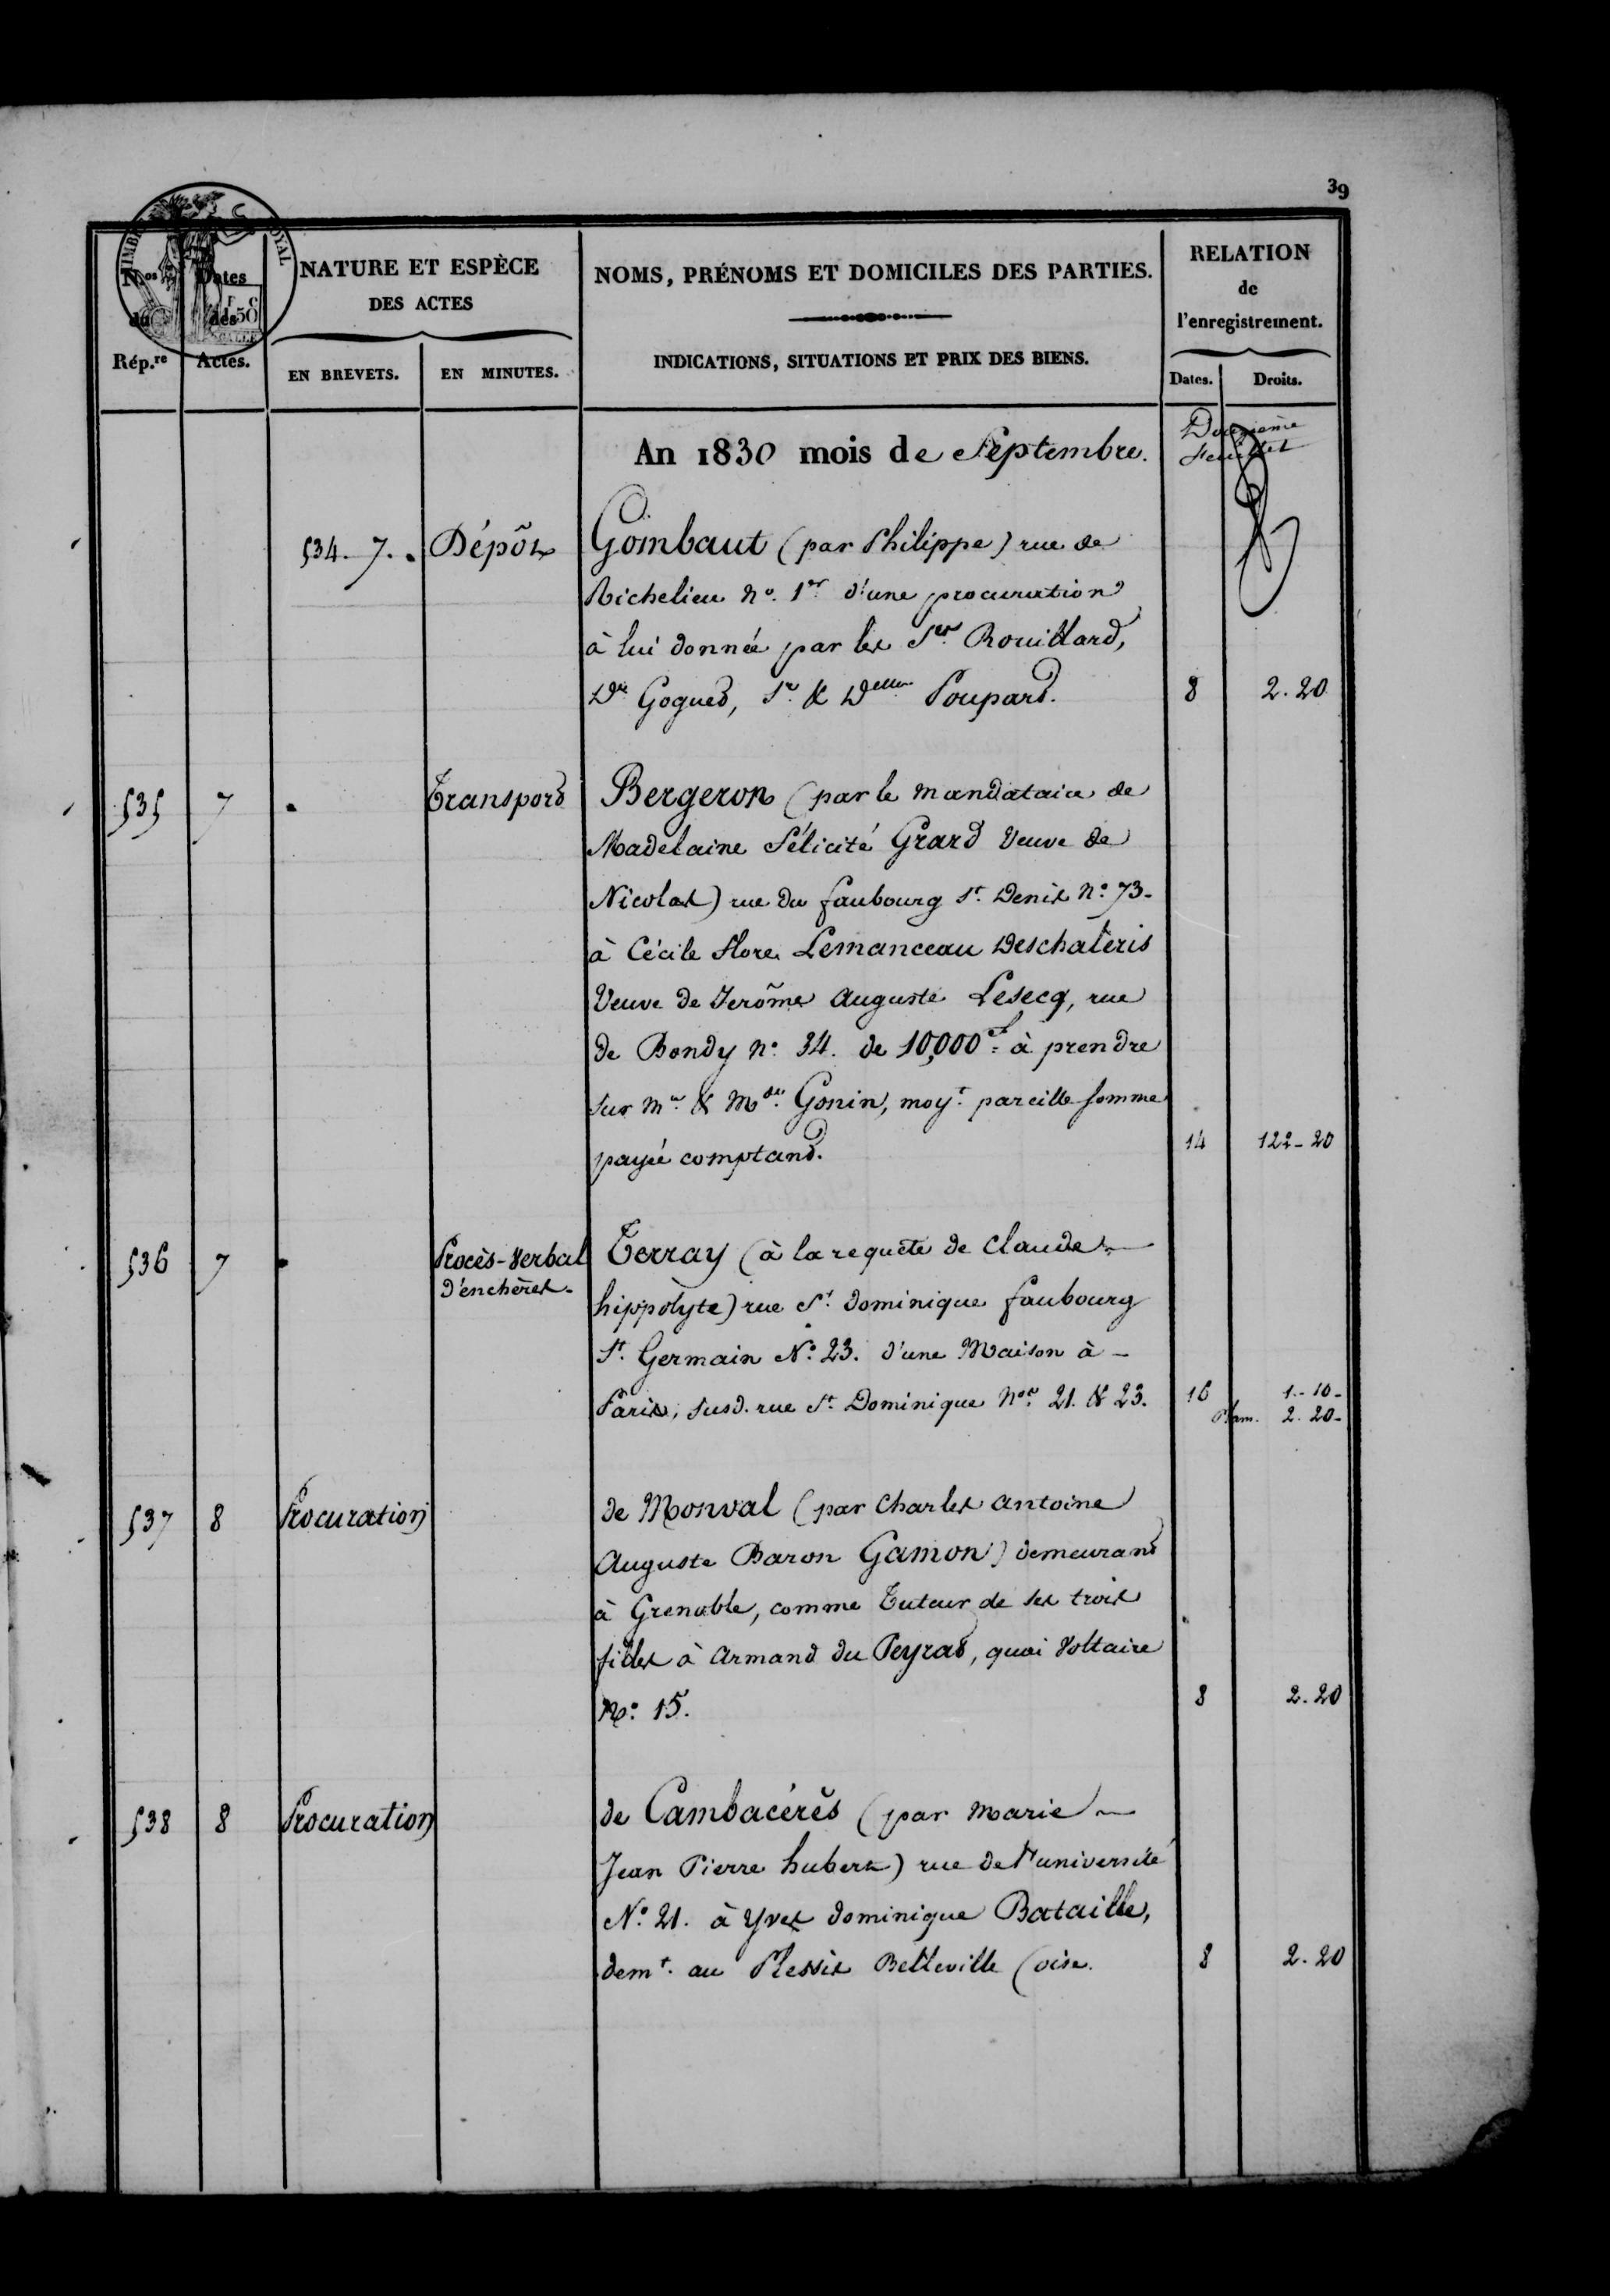 39
TIMBRE ROYAL
N.os du Rép.re
Dates des Actes.
NATURE ET ESPÈCE
DES ACTES
EN BREVETS.
EN MINUTES.
NOMS, PRÉNOMS ET DOMICILES DES PARTIES.
INDICATIONS, SITUATIONS ET PRIX DES BIENS.
RELATION
de
l'enregistrement.
Dates.
Droits.
An 1830 mois de Septembre.
feuillet
534. 7. Dépôt Gombaut (par Philippe) rue de
Richelieu n°. 1er d'une procuration
à lui donnée par les Srs Rouillard,
De Gogued, Sr. & Delles Poupard. 8 2.20
535 7 Transport Bergeron (par le mandataire de
Madelaine Félicité Grard Veuve de
Nicolas) rue du faubourg St. Denis n°. 73.
à Cécile Flore Lemanceau Deschaleris
Veuve de Jerôme auguste Lesecq, rue
de Bondy n°. 34. de 10,000f à prendre
sur Mr. & Mde. Gonin, moyt. pareille somme
payée comptant. 14 122-20
536 7 Procès-verbal Terray (à la requête de Claude
d'enchères. hippolyte) rue St. dominique faubourg
St. Germain N°. 23. d'une Maison à
Paris, susd. rue St. Dominique Nos. 21. & 23. 16 1.-10-
2.20-
537 8 Procuration de Monval (par Charles antoine
Auguste Baron Gamon) demeurant
à Grenoble, comme Tuteur de ses trois
filles à armand du Peyrat, quai Voltaire
N°. 15. 8 2.20
538 8 Procuration de Cambacérès (par Marie
Jean Pierre hubert) rue de l'université
N°. 21. à Yves dominique Bataille,
demt. au Plessis Belleville (oise. 8 2.20